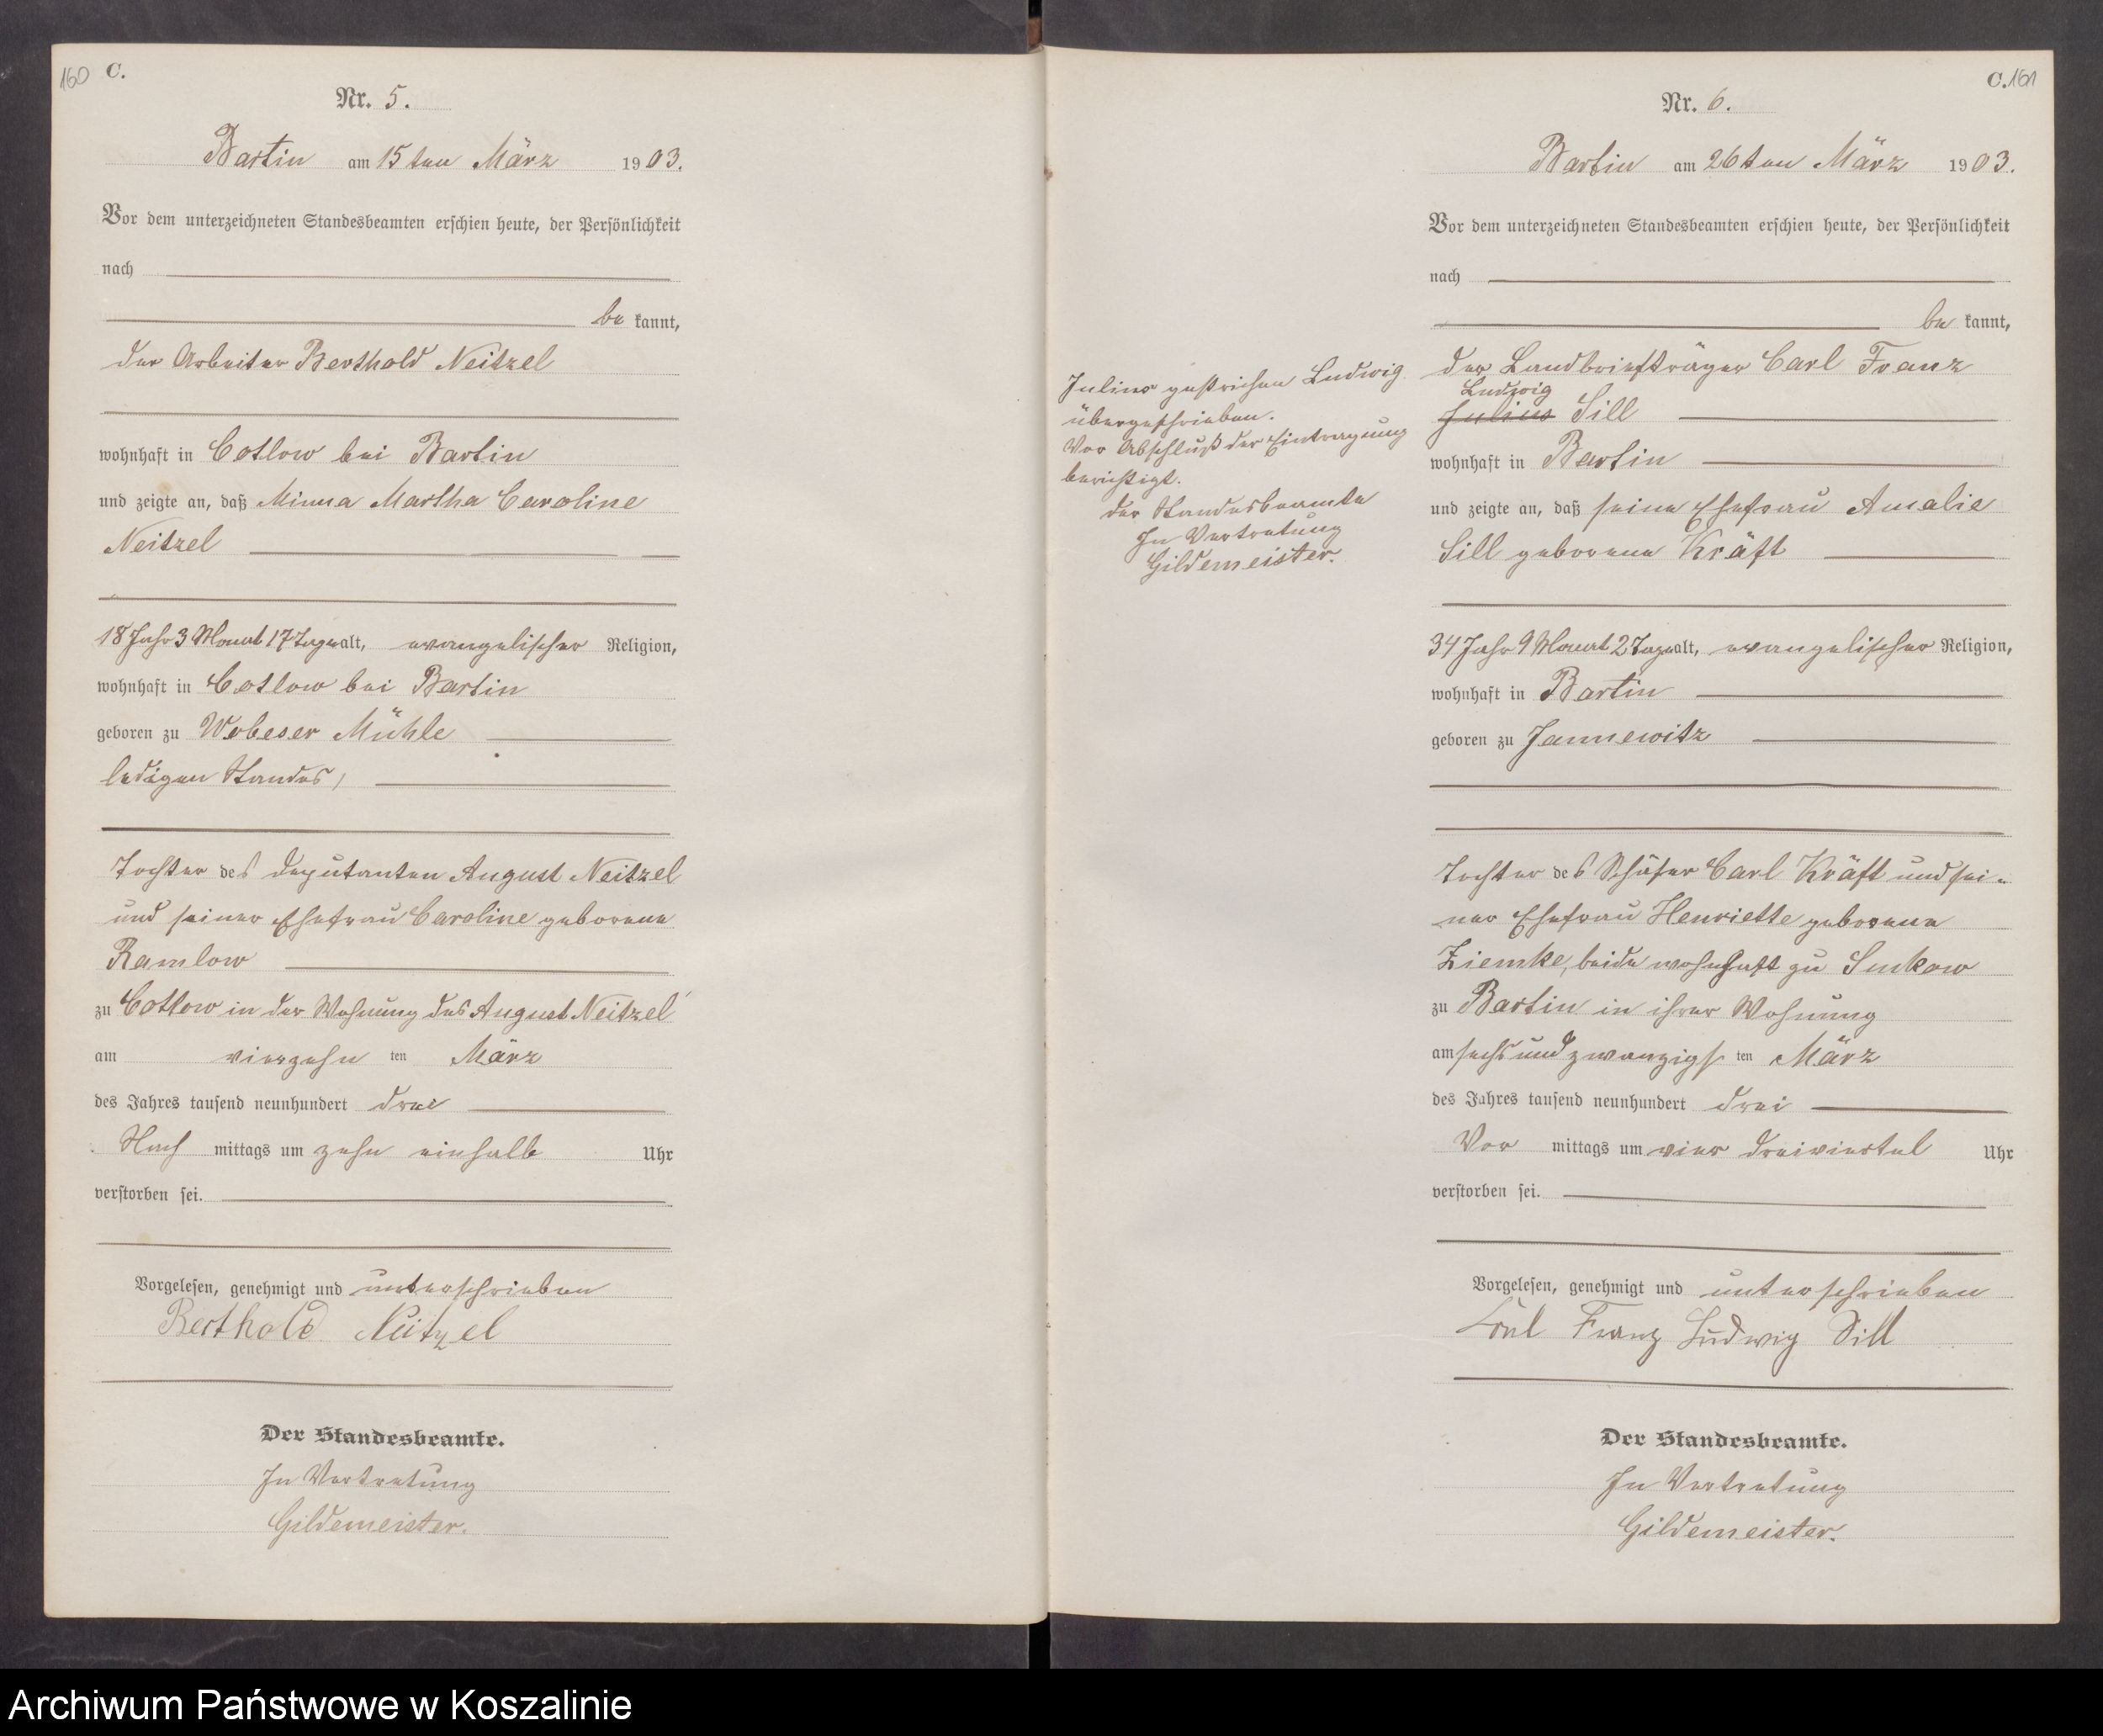 160 C.
Nr. 5.
Bartin am 15ten März 1903.
Vor dem unterzeichneten Standesbeamten erschien heute, der Persönlichkeit
nach
be kannt,
der Arbeiter Berthold Neitzel
wohnhaft in Cotlow bei Bartin
und zeigte an, daß Minna Martha Caroline
Neitzel
18 Jahr 3 Monat 17 Tage alt, evangelischer Religion,
wohnhaft in Cotlow bei Bartin
geboren zu Wobeser Mühle
ledigen Standes,
Tochter des Deputanten August Neitzel
und seiner Ehefrau Caroline geborene
Ramlow
zu Cotlow in der Wohnung des August Neitzel
am vierzehn ten März
des Jahres tausend neunhundert drei
Nach mittags um zehn einhalb Uhr
verstorben sei.
Vorgelesen, genehmigt und unterschrieben
Berthold Neitzel
Der Standesbeamte.
In Vertretung
Gildemeister.
C. 161
Nr. 6.
Bartin am 26ten März 1903.
Vor dem unterzeichneten Standesbeamten erschien heute, der Persönlichkeit
nach
be kannt,
der Landbriefträger Carl Franz
Ludwig
Julius Sill
wohnhaft in Bartin
und zeigte an, daß seine Ehefrau Amalie
Sill geborene Kräft
34 Jahr 9 Monat 2 Tage alt, evangelischer Religion,
wohnhaft in Bartin
geboren zu Jannewitz
Tochter des Schäfer Carl Kräft und sei-
ner Ehefrau Henriette geborene
Ziemke, beide wohnhaft zu Suckow
zu Bartin in ihrer Wohnung
am sechsundzwanzigs ten März
des Jahres tausend neunhundert drei
Vor mittags um vier dreiviertel Uhr
verstorben sei.
Vorgelesen, genehmigt und unterschrieben
Carl Franz Ludwig Sill
Der Standesbeamte.
In Vertretung
Gildemeister.
Julius gestrichen Ludwig
übergeschrieben.
Vor Abschluß der Eintragung
berichtigt.
der Standesbeamte
In Vertretung
Gildemeister.
Archiwum Państwowe w Koszalinie